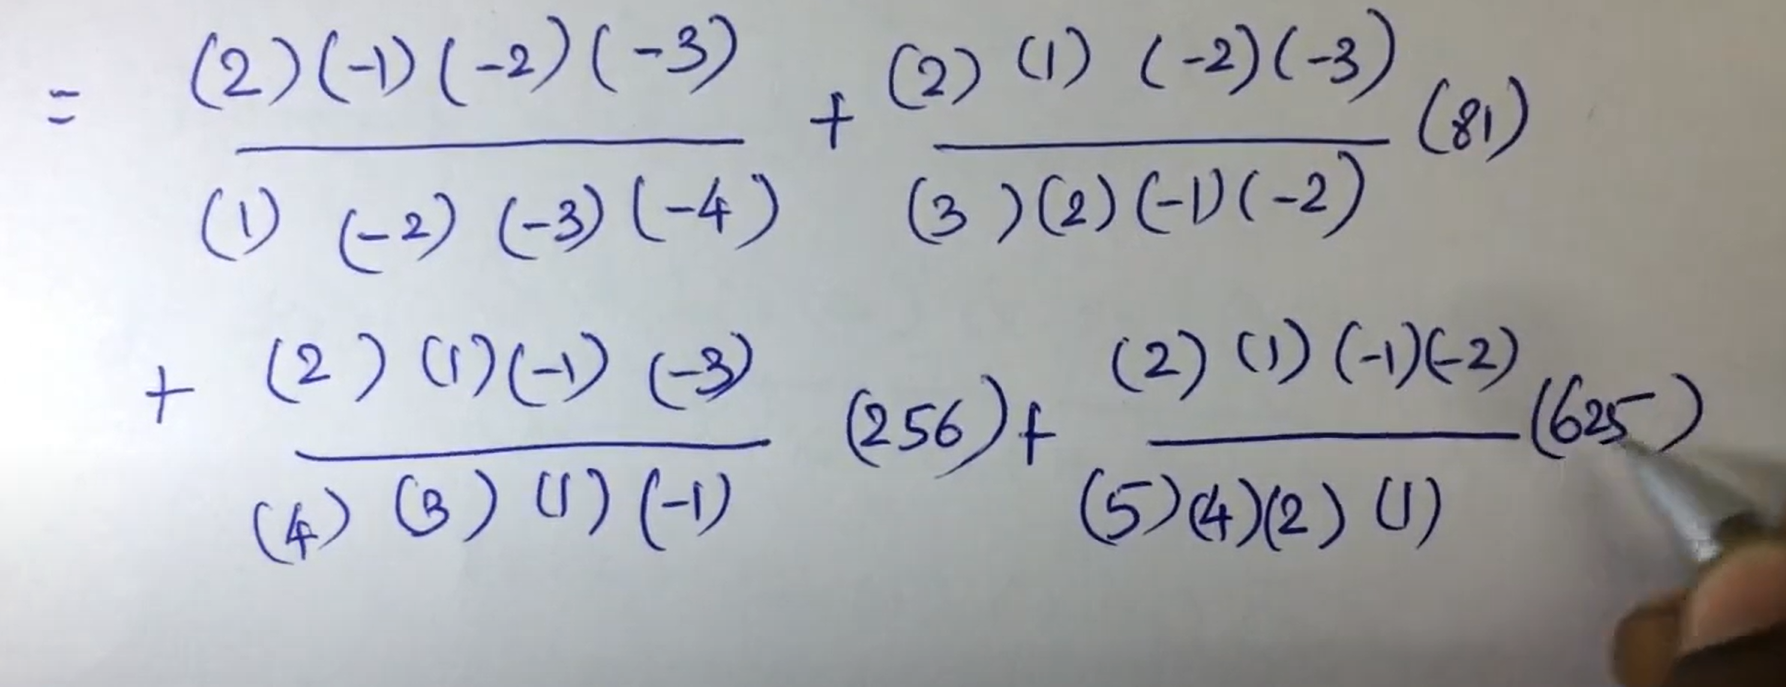 = (2)(-1)(-2)(-3) / (1)(-2)(-3)(-4) + (2)(1)(-2)(-3) / (3)(2)(-1)(-2) (81)
+ (2)(1)(-1)(-3) / (4)(3)(1)(-1) (256) + (2)(1)(-1)(-2) / (5)(4)(2)(1) (625)